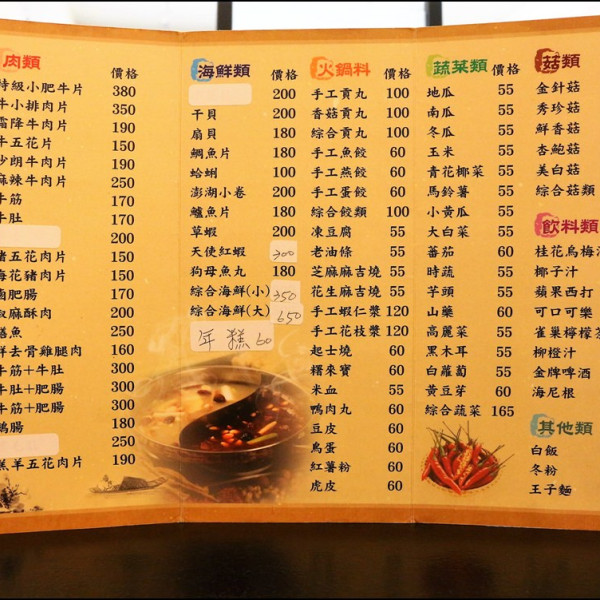 肉類 價格
特級小肥牛片 380
牛小排肉片 350
霜降牛肉片 190
牛五花片 150
沙朗牛肉片 190
麻辣牛肉片 250
牛筋 170
牛肚 170
200
豬五花肉片 150
梅花豬肉片 150
滷肥腸 170
椒麻酥肉 200
鱔魚 250
鮮去骨雞腿肉 160
牛筋+牛肚 300
牛肚+肥腸 300
牛筋+肥腸 300
鴨腸 180
250
羔羊五花肉片 190
海鮮類 價格
200
干貝 200
扇貝 180
鯛魚片 180
蛤蜊 100
澎湖小卷 200
鱸魚片 180
草蝦 200
天使紅蝦 300
狗母魚丸 180
綜合海鮮(小) 350
綜合海鮮(大) 650
年糕 60
火鍋料 價格
手工貢丸 100
香菇貢丸 100
綜合貢丸 100
手工魚餃 60
手工燕餃 60
手工蛋餃 60
綜合餃類 100
凍豆腐 55
老油條 55
芝麻麻吉燒 55
花生麻吉燒 55
手工蝦仁漿 120
手工花枝漿 120
起士燒 60
糯米寶 60
米血 55
鴨肉丸 60
豆皮 60
鳥蛋 60
紅薯粉 60
虎皮 60
蔬菜類 價格
地瓜 55
南瓜 55
冬瓜 55
玉米 55
青花椰菜 55
馬鈴薯 55
小黃瓜 55
大白菜 55
蕃茄 60
時蔬 55
芋頭 55
山藥 60
高麗菜 55
黑木耳 55
白蘿蔔 55
黃豆芽 60
綜合蔬菜 165
菇類
金針菇
秀珍菇
鮮香菇
杏鮑菇
美白菇
綜合菇類
飲料類
桂花烏梅
椰子汁
蘋果西打
可口可樂
雀巢檸檬茶
柳橙汁
金牌啤酒
海尼根
其他類
白飯
冬粉
王子麵